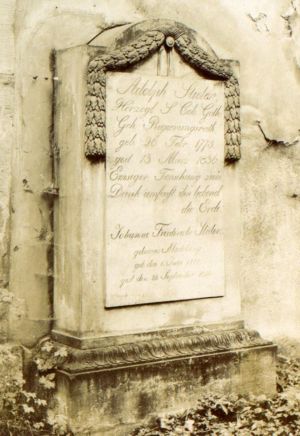 Adolph Stieler
Herzogl S Cob Goth
Geh Regierungsrath
geb 26 Febr 1775
gest 13 März 1836
Ewiger Forschung zum
Dank umfasst du
die Erde
Johanna Friederike Stieler
geborene
geb den
gest den September